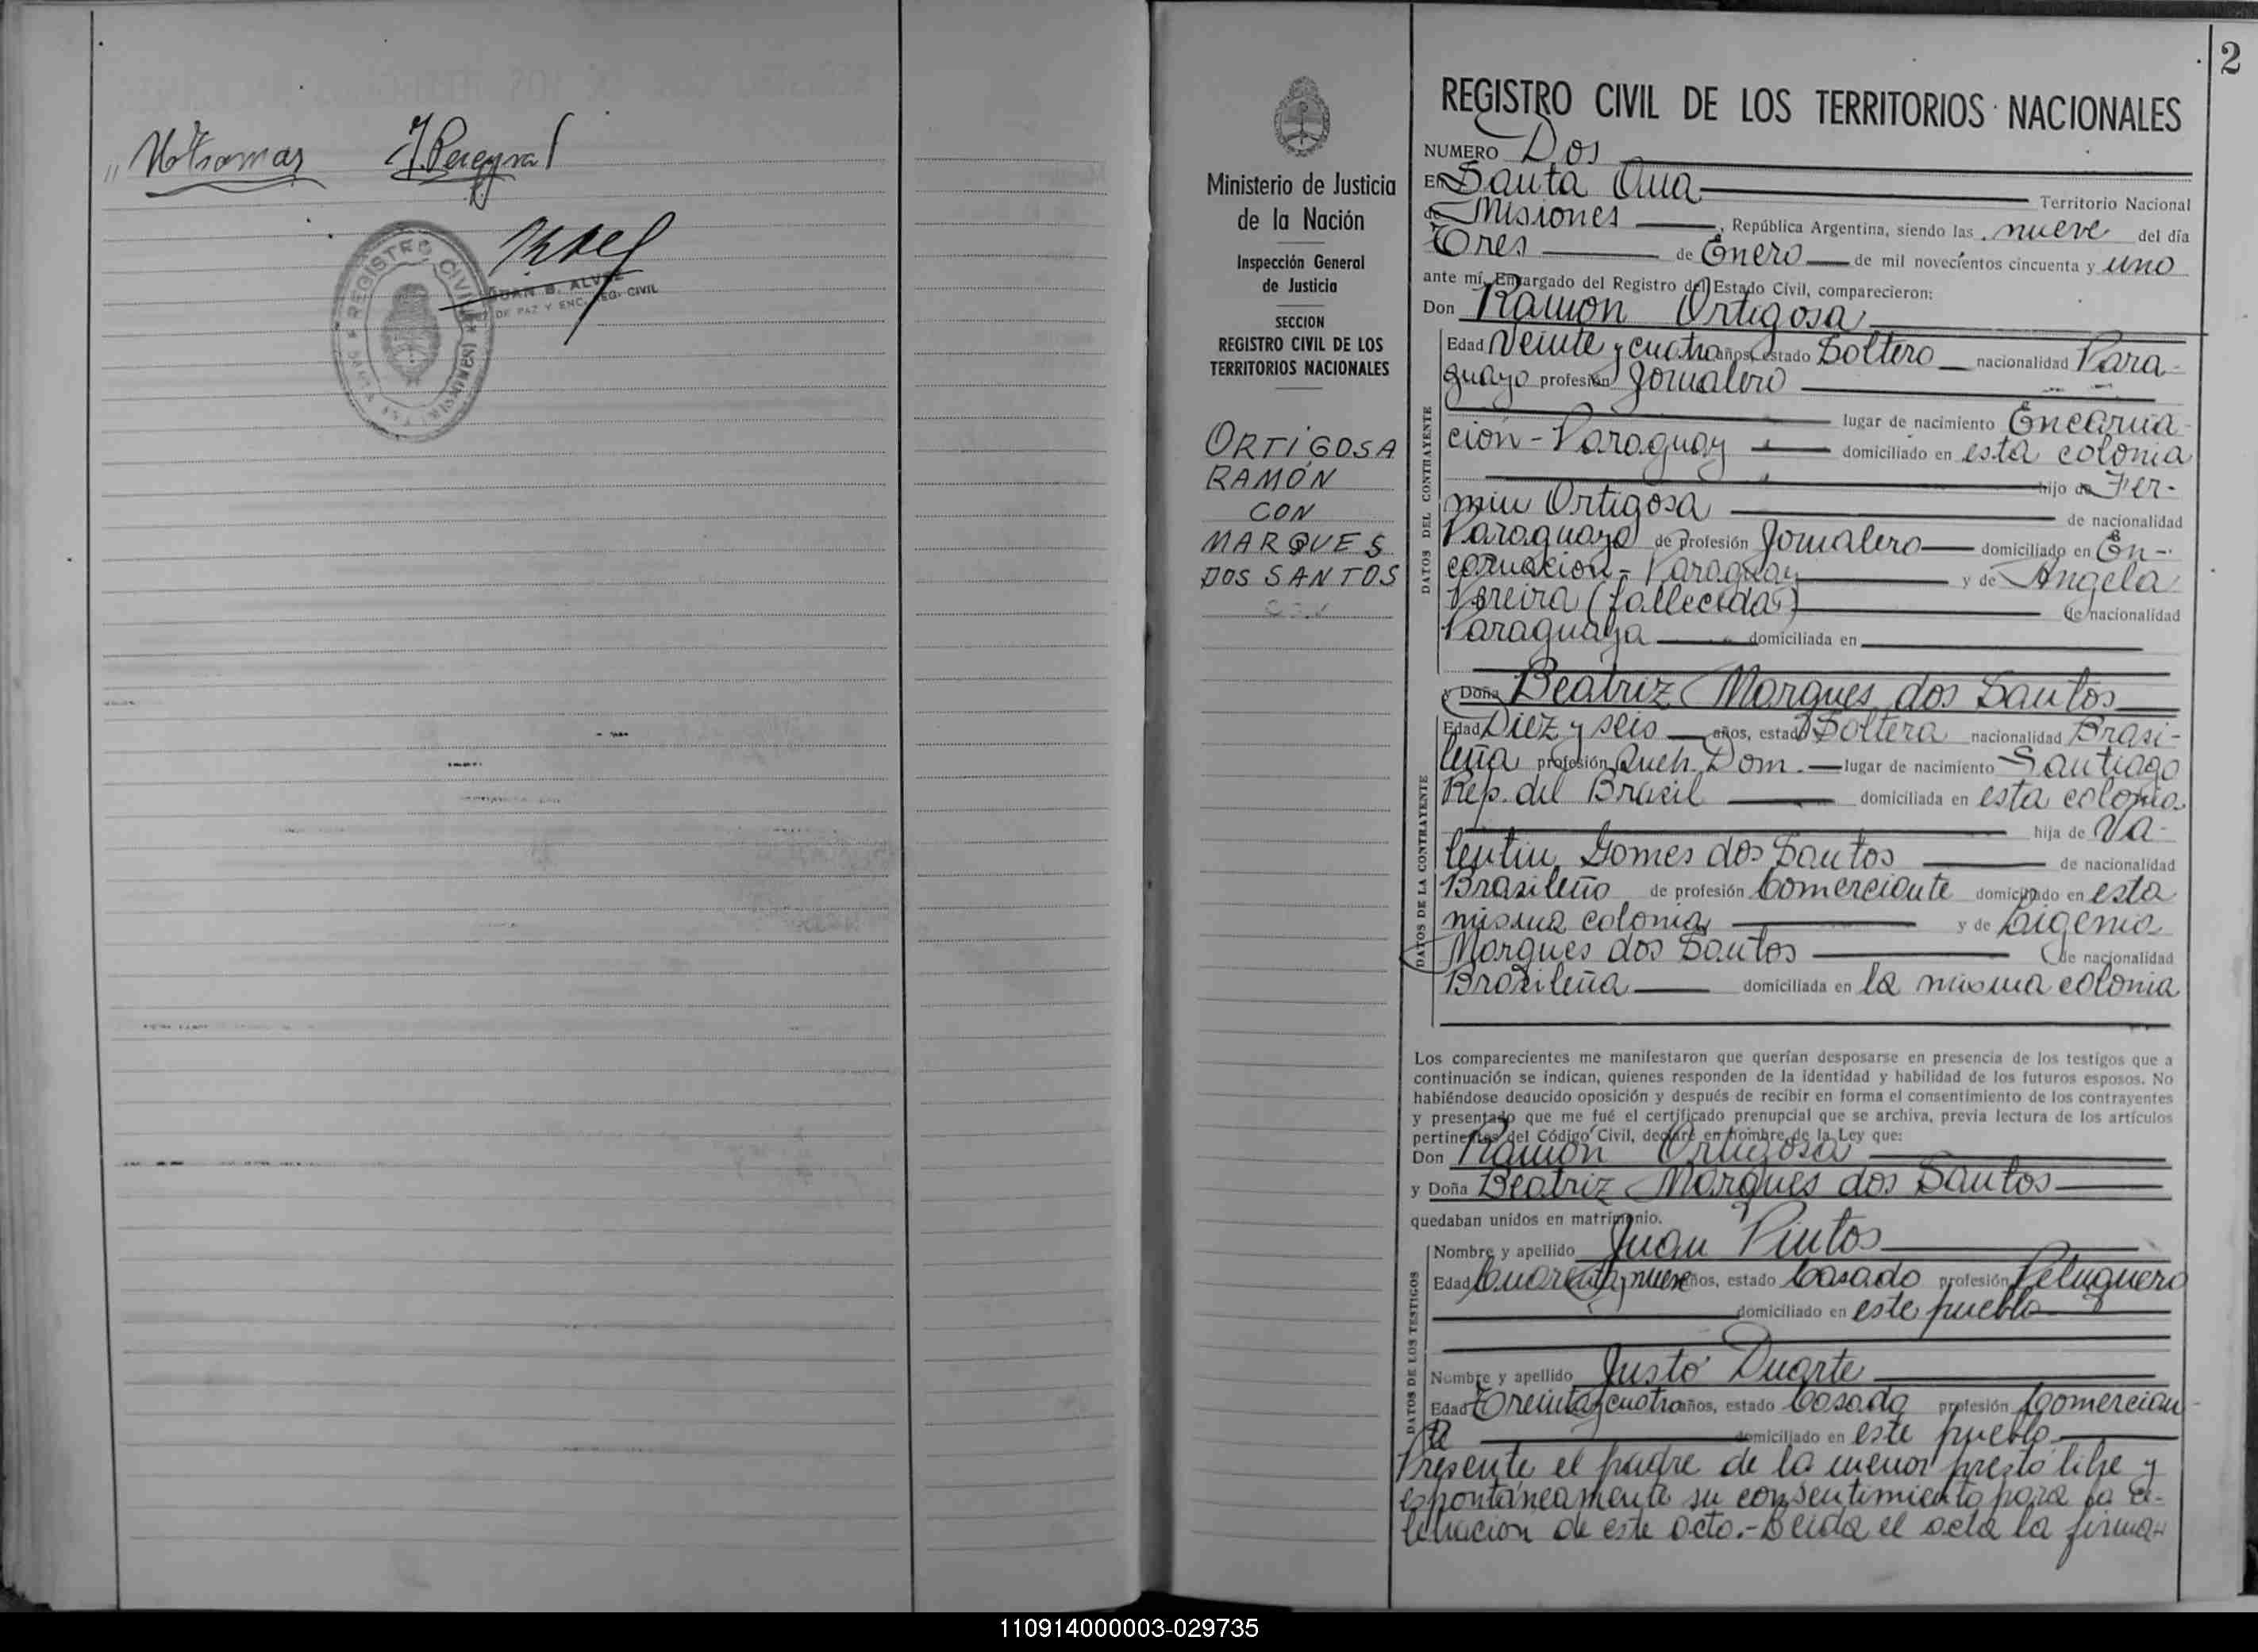 J. Pereyra
REGISTRO CIVIL
(MISIONES)
JUAN B. ALVEZ
DE PAZ Y ENC. REG. CIVIL
2
Ministerio de Justicia
de la Nación
Inspección General
de Justicia
SECCION
REGISTRO CIVIL DE LOS
TERRITORIOS NACIONALES
ORTIGOSA
RAMÓN
CON
MARQUES
DOS SANTOS
REGISTRO CIVIL DE LOS TERRITORIOS NACIONALES
NUMERO Dos
En Santa Ana Territorio Nacional
de Misiones, República Argentina, siendo las nueve del día
Tres de Enero de mil novecientos cincuenta y uno
ante mí, Encargado del Registro del Estado Civil, comparecieron:
Don Ramón Ortigosa
DATOS DEL CONTRAYENTE
Edad Veinte y cuatro años, estado Soltero nacionalidad Para-
guayo profesión Jornalero
lugar de nacimiento Encarna-
ción - Paraguay domiciliado en esta colonia
hijo de Fer-
min Ortigosa de nacionalidad
Paraguayo de profesión Jornalero domiciliado en En-
carnación - Paraguay y de Angela
Pereira (fallecida) de nacionalidad
Paraguaya domiciliada en
y Doña Beatriz Marques dos Santos
DATOS DE LA CONTRAYENTE
Edad Diez y seis años, estado Soltera nacionalidad Brasi-
leña profesión Queh. Dom. lugar de nacimiento Santiago
Rep. del Brasil domiciliada en esta colonia
hija de Va-
lentin Gomes dos Santos de nacionalidad
Brasileño de profesión Comerciante domiciliado en esta
misma colonia y de
Marques dos Santos de nacionalidad
Brasileña domiciliada en la misma colonia
Los comparecientes me manifestaron que querían desposarse en presencia de los testigos que a
continuación se indican, quienes responden de la identidad y habilidad de los futuros esposos. No
habiéndose deducido oposición y después de recibir en forma el consentimiento de los contrayentes
y presentado que me fué el certificado prenupcial que se archiva, previa lectura de los artículos
pertinentes del Código Civil, declaré en nombre de la Ley que:
Don Ramón Ortigosa
y Doña Beatriz Marques dos Santos
quedaban unidos en matrimonio.
DATOS DE LOS TESTIGOS
Nombre y apellido Juan Pintos
Edad Cuarenta y nueve años, estado Casado profesión Peluquero
domiciliado en este pueblo
Nombre y apellido Justo Duarte
Edad Treinta y cuatro años, estado Casado profesión Comercian-
te domiciliado en este pueblo
Presente el padre de la menor prestó libre y
espontáneamente su consentimiento para la ce-
lebración de este acto.- Leida el acta la firma-
110914000003-029735